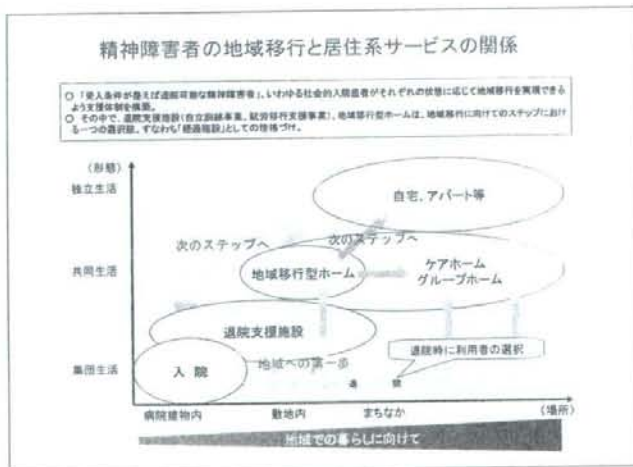 精神障害者の地域移行と居住系サービスの関係
○ 「受入条件が整えば退院可能な精神障害者」、いわゆる社会的入院患者がそれぞれの状態に応じて地域移行を実現できる
よう支援体制を構築。
○ その中で、退院支援施設(自立訓練事業、就労移行支援事業)、地域移行型ホームは、地域移行に向けてのステップにおけ
る一つの選択肢、すなわち「経過施設」としての性格づけ。
(形態)
独立生活
自宅、アパート等
次のステップへ
次のステップへ
共同生活
地域移行型ホーム
ケアホーム
グループホーム
退院支援施設
退院時に利用者の選択
集団生活
入 院
地域への第一歩
退 院
病院建物内
敷地内
まちなか
(場所)
地域での暮らしに向けて